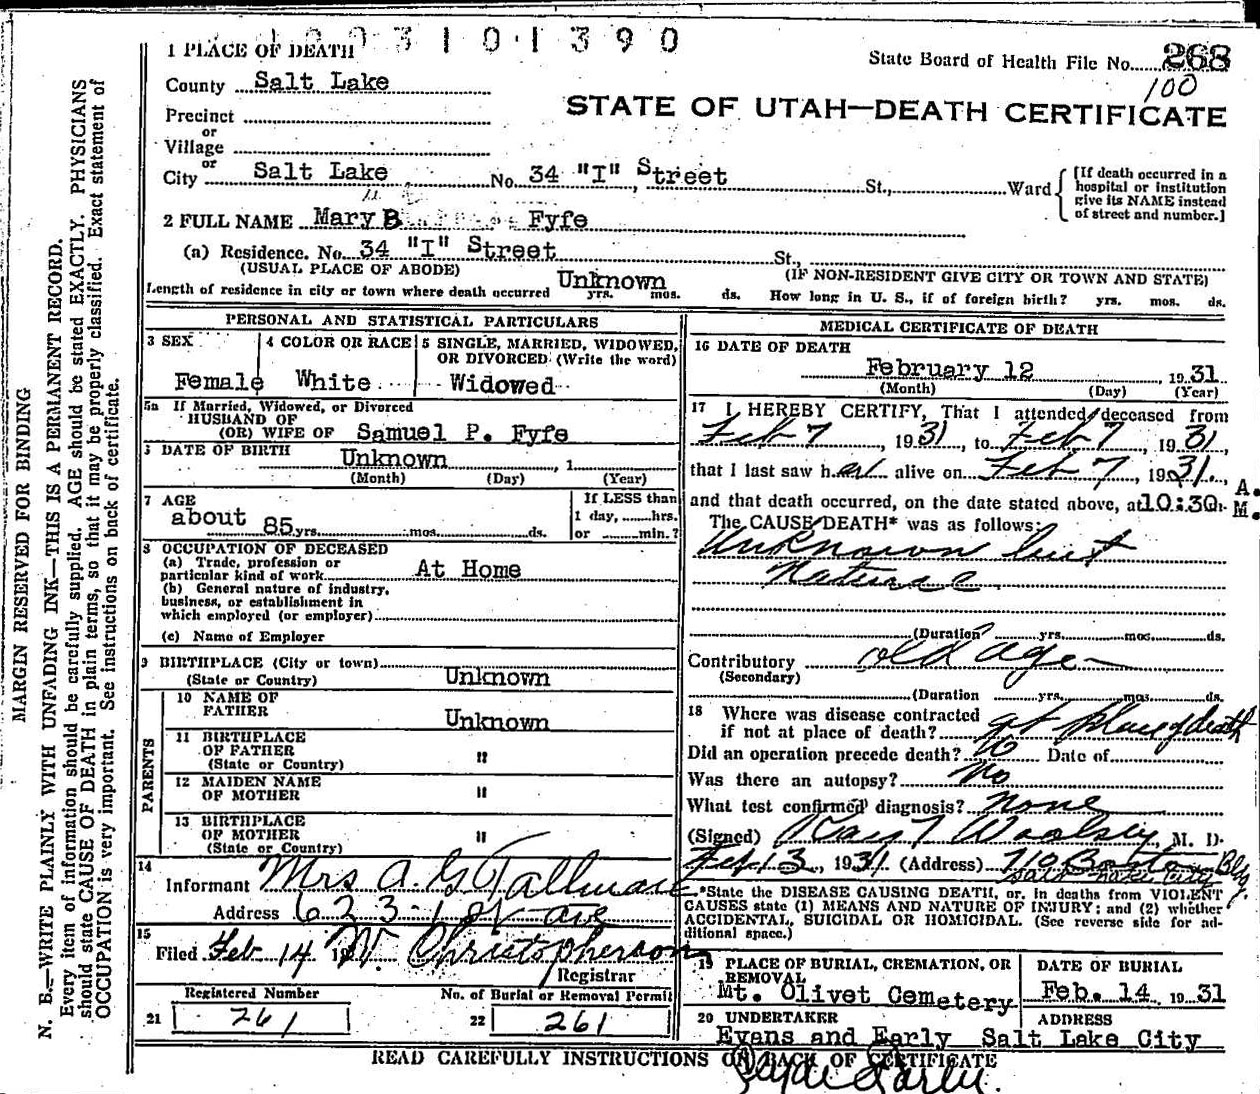 1003101390
1 PLACE OF DEATH
State Board of Health File No. 268
100
County Salt Lake
STATE OF UTAH—DEATH CERTIFICATE
Precinct
or
Village
or
City Salt Lake No. 34 "I" Street St., Ward
[If death occurred in a hospital or institution give its NAME instead of street and number.]
2 FULL NAME Mary B Fyfe
(a) Residence. No. 34 "I" Street St.,
(USUAL PLACE OF ABODE) (IF NON-RESIDENT GIVE CITY OR TOWN AND STATE)
Length of residence in city or town where death occurred Unknown yrs. mos. ds. How long in U. S., if of foreign birth? yrs. mos. ds.
PERSONAL AND STATISTICAL PARTICULARS
3 SEX 4 COLOR OR RACE 5 SINGLE, MARRIED, WIDOWED,
OR DIVORCED (Write the word)
Female White Widowed
5a If Married, Widowed, or Divorced
HUSBAND OF
(OR) WIFE OF Samuel P. Fyfe
DATE OF BIRTH Unknown , 1
(Month) (Day) (Year)
7 AGE If LESS than
about 85 yrs. mos. ds. 1 day, hrs.
or min.?
8 OCCUPATION OF DECEASED
(a) Trade, profession or
particular kind of work At Home
(b) General nature of industry,
business, or establishment in
which employed (or employer)
(c) Name of Employer
9 BIRTHPLACE (City or town)
(State or Country) Unknown
PARENTS
10 NAME OF
FATHER Unknown
11 BIRTHPLACE
OF FATHER "
(State or Country)
12 MAIDEN NAME
OF MOTHER "
13 BIRTHPLACE
OF MOTHER "
(State or Country)
14
Informant Mrs A. G. Tallman
Address 623-1st ave
15
Filed Feb 14 19 M. Christopherson
Registrar
Registered Number No. of Burial or Removal Permit
21 261 22 261
MEDICAL CERTIFICATE OF DEATH
16 DATE OF DEATH
February 12 , 1931
(Month) (Day) (Year)
17 I HEREBY CERTIFY, That I attended deceased from
Feb 7, 1931, to Feb 7, 1931,
that I last saw her alive on Feb 7, 1931,
and that death occurred, on the date stated above, at 10:30 A. M.
The CAUSE DEATH* was as follows:
Unknown but
Natural
(Duration yrs. mos. ds.
Contributory old age
(Secondary)
(Duration yrs. mos. ds.
18 Where was disease contracted
if not at place of death? at place of death
Did an operation precede death? No Date of
Was there an autopsy? No
What test confirmed diagnosis? none
(Signed) Ray T Woolsey, M. D.
Feb 13, 1931 (Address) 710 Boston Bldg.
Salt Lake City
*State the DISEASE CAUSING DEATH, or, in deaths from VIOLENT
CAUSES state (1) MEANS AND NATURE OF INJURY; and (2) whether
ACCIDENTAL, SUICIDAL OR HOMICIDAL. (See reverse side for ad-
ditional space.)
19 PLACE OF BURIAL, CREMATION, OR DATE OF BURIAL
REMOVAL
Mt. Olivet Cemetery Feb. 14, 1931
20 UNDERTAKER ADDRESS
Evans and Early Salt Lake City
READ CAREFULLY INSTRUCTIONS ON BACK OF CERTIFICATE
MARGIN RESERVED FOR BINDING
N. B.—WRITE PLAINLY WITH UNFADING INK—THIS IS A PERMANENT RECORD.
Every item of information should be carefully supplied. AGE should be stated EXACTLY. PHYSICIANS
should state CAUSE OF DEATH in plain terms, so that it may be properly classified. Exact statement of
OCCUPATION is very important. See instructions on back of certificate.